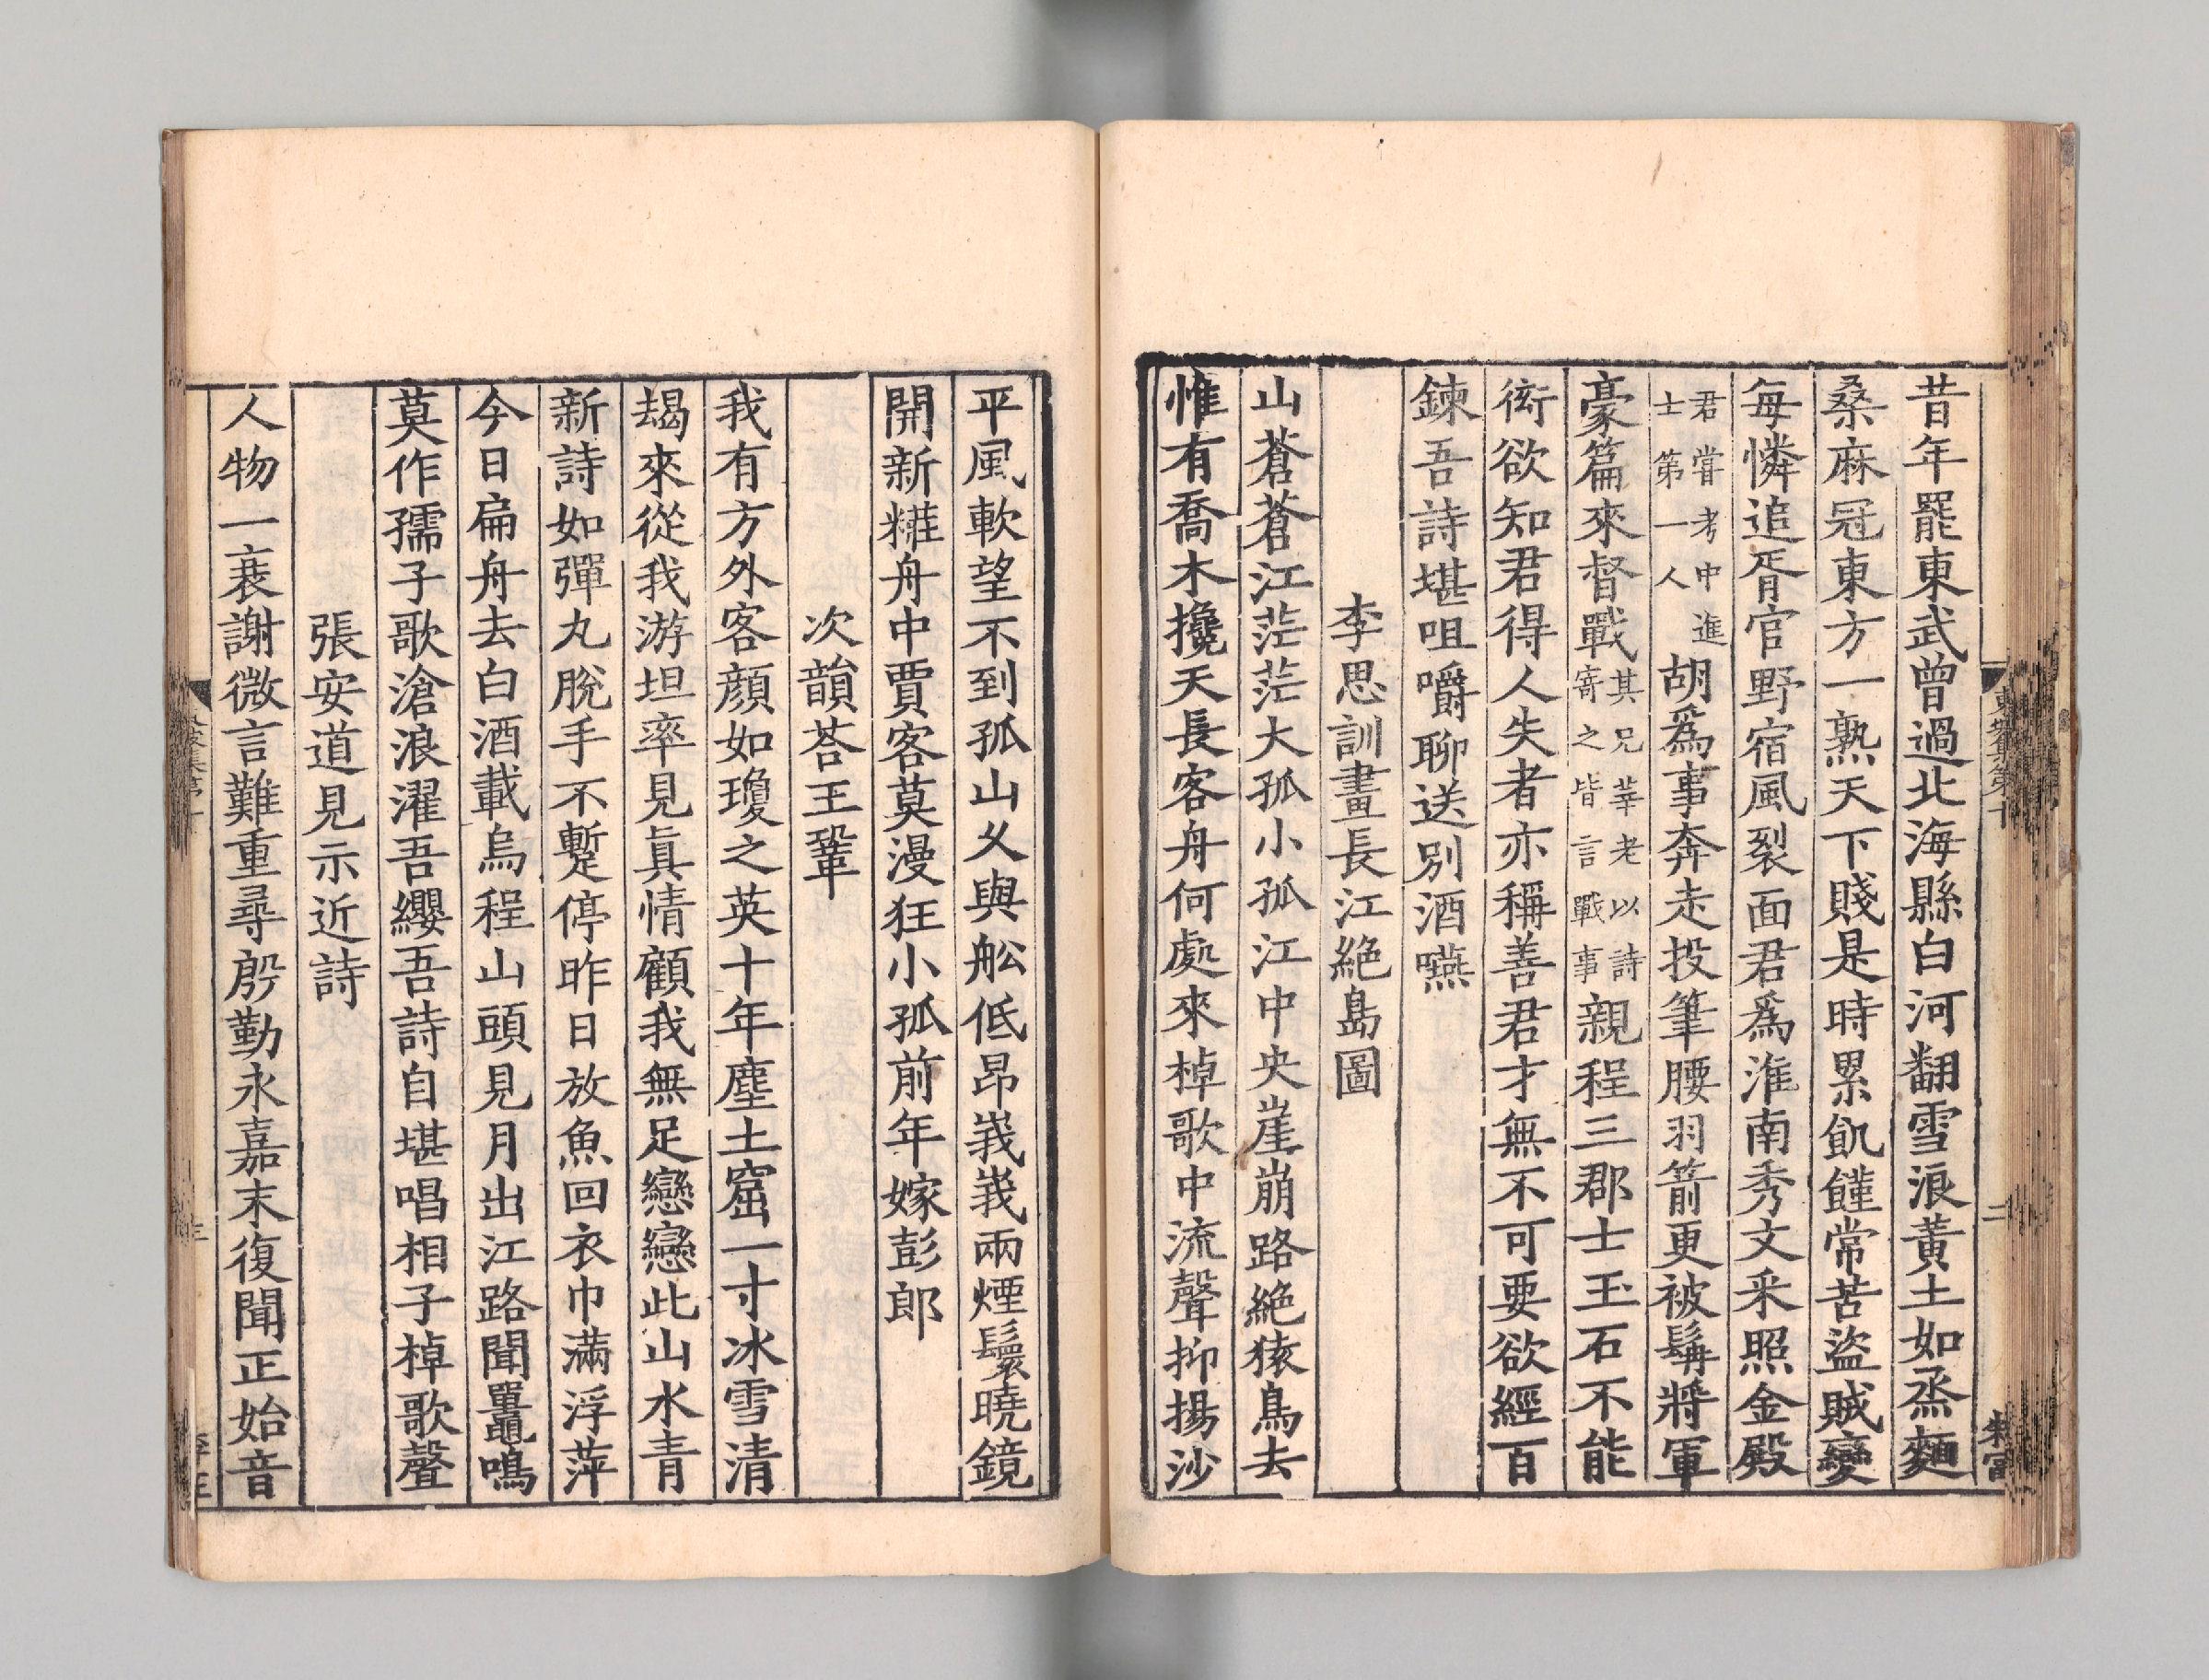 昔年罷東武曾過北海縣白河翻雪浪黃土如烝麵
桑麻冠東方一熟天下賤是時累飢饉常苦盜賊變
每憐追胥官野宿風裂面君爲淮南秀文采照金殿
君嘗考中進
士第一人
胡爲事奔走投筆腰羽箭更被髯將軍
豪篇來督戰
其兄莘老以詩
寄之皆言戰事
親程三郡士玉石不能
衒欲知君得人失者亦稱善君才無不可要欲經百
鍊吾詩堪咀嚼聊送別酒嚥
李思訓畫長江絶島圖
山蒼蒼江茫茫大孤小孤江中央崖崩路絶猿鳥去
惟有喬木攙天長客舟何處來棹歌中流聲抑揚沙
平風軟望不到孤山乆與舩低昂峩峩兩煙鬟曉鏡
開新糚舟中賈客莫漫狂小孤前年嫁彭郎
次韻荅王鞏
我有方外客顔如瓊之英十年塵土窟一寸冰雪清
朅來從我游坦率見眞情顧我無足戀戀此山水青
新詩如彈丸脫手不蹔停昨日放魚回衣巾滿浮萍
今日扁舟去白酒載烏程山頭見月出江路聞鼉鳴
莫作孺子歌滄浪濯吾纓吾詩自堪唱相子棹歌聲
張安道見示近詩
人物一衰謝微言難重尋殷勤永嘉末復聞正始音